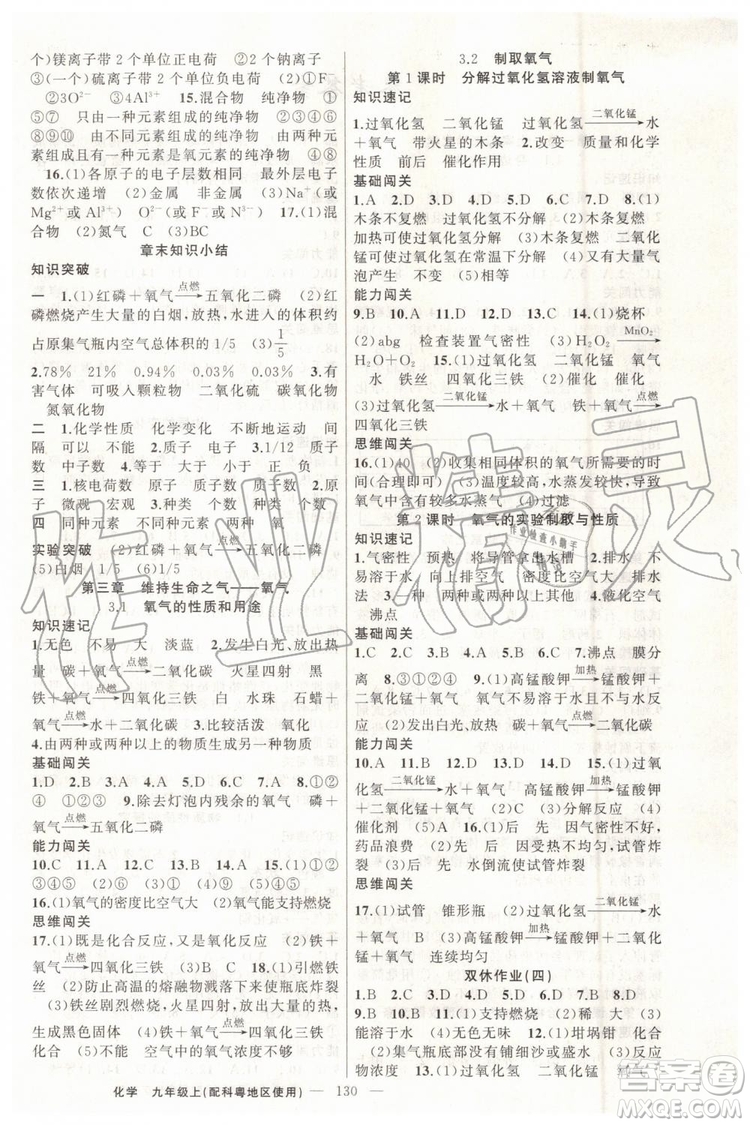 个)镁离子带 2 个单位正电荷 ②2 个钠离子
③(一个)硫离子带 2 个单位负电荷 (2)①F
②3O²⁻ ③4Al³⁺ 15.混合物 纯净物 ②⑥
⑦ 只由一种元素组成的纯净物 ①③④⑤
⑧⑨⑩ 由不同元素组成的纯净物 ④⑧ 两种
元素组成且其中一种是氧元素的纯净物 ①⑤
16.(1)各原子的电子层数相同 最外层电子
数依次递增 (2)金属 非金属 (3)Na⁺(或
Mg²⁺或 Al³⁺) O²⁻(或 F⁻) 17.(1)混
合物 (2)氮气 C (3)BC
章末知识小结
知识突破
一 1.(1)红磷+氧气 点燃→ 五氧化二磷 (2)红
磷燃烧产生大量的白烟,放热,水进入的体积约
占原集气瓶内空气总体积的 1/5 (3)1/5
2.78% 21% 0.94% 0.03% 0.03% 3.有
害气体 可吸入颗粒物 二氧化硫 碳氧化物
氮氧化物
二 1.化学性质 化学变化 不断地运动 间
隔 可以 不能 2.质子 电子 3.1/12 质子
数 中子数 4.等于 大于 小于 正 负
三 1.核电荷数 核电荷数 种类 2.质子数 原
子 微观 宏观 3.种类 个数 种类 个数
四 同种元素 不同种元素 两种 氧
实验突破 (2)红磷+氧气 点燃→ 五氧化二磷
(5)白烟 1/5 5/6
第三章 维持生命之气——氧气
3.1 氧气的性质和用途
知识速记
1.无色 不易 大 淡蓝 2.发生白光,放出热
量 碳+氧气 点燃→ 二氧化碳 火星四射 黑
铁+氧气 点燃→ 四氧化三铁 白 水珠 石蜡+
氧气 点燃→ 水+二氧化碳 3.比较活泼 氧化
4.由两种或两种以上的物质生成另一种物质
基础闯关
1.D 2.B 3.C 4.C 5.A 6.D 7.B 8.①③
④ ①③ ②⑤ 9.除去灯泡内残余的氧气 磷+
氧气 点燃→ 五氧化二磷
能力闯关
10.C 11.A 12.D 13.D 14.A 15.(1)①②
③④⑤ (2)①②③④⑤ (3)①②③④ (4)①
16.(1)氧气的密度比空气大 (2)氧气能支持燃烧
思维闯关
17.(1)既是化合反应,又是氧化反应 (2)铁+
氧气 点燃→ 四氧化三铁 (3)B C 18.(1)引燃铁
丝 (2)防止高温的熔融物溅落下来使瓶底炸裂
(3)铁丝剧烈燃烧,火星四射,放出大量的热,
生成黑色固体 (4)铁+氧气 点燃→ 四氧化三铁
化合 空气中氧气的浓度不够
化学 九年级上(配科粤地区使用) — 130 —
3.2 制取氧气
第 1 课时 分解过氧化氢溶液制氧气
知识速记
1.过氧化氢 二氧化锰 过氧化氢 二氧化锰→ 水
+氧气 带火星的木条 2.改变 质量 化学
性质 前 催化作用
基础闯关
1.A 2.D 3.D 4.D 5.A 6.D 7.B 8.(1)
木条不复燃 过氧化氢不分解 (2)木条复燃
加热可使过氧化氢分解 (3)木条复燃 二氧化
锰可使过氧化氢在常温下分解 (4)大量气
泡产生 不变 (5)相等
能力闯关
9.B 10.A 11.D 12.D 13.A 14.(1)烧杯
(2)abg 检查装置气密性 (3)H₂O₂ MnO₂→
H₂O+O₂ 15.(1)过氧化氢 二氧化锰 氧气
水 铁丝 四氧化三铁 (2)催化 催化
(3)过氧化氢 二氧化锰→ 水+氧气 铁+氧气 点燃→
四氧化三铁
思维闯关
16.(1)40 (2)收集相同体积的氧气所需要的时
间(合理即可) (3)温度较高,水蒸发较快,导致
氧气中含有较多水蒸气 (4)过滤
第 2 课时 氧气的实验制取与性质
知识速记
1.气密性 预热 将导管拿出水槽 (1)密度 不
易溶于水 向上排空气 密度比空气大 排水
法 2.一种 两种或两种以上 4.液化空气
沸点
基础闯关
1.C 2.C 3.B 4.A 5.B 6.D 7.沸点 膜分
离 8.③①②④ 9.(1)高锰酸钾 加热→ 锰酸钾+
二氧化锰+氧气 氧气不易溶于水且不与水反
应 (2)发出白光、放热 碳+氧气 点燃→ 二氧化碳
能力闯关
10.D 11.B 12.D 13.D 14.A 15.(1)过氧
化氢 二氧化锰→ 水+氧气 高锰酸钾 加热→ 锰酸钾
+二氧化锰+氧气 (2)催化作用 (3)分解反应 (4)
催化剂 (5)A 16.(1)②⑤ (2)放出热量,造成
药品浪费 (3)③⑥ 先预热,使试管受热均匀,试管炸
裂 ④⑥ 水倒流使试管炸裂
思维闯关
17.(1)试管 锥形瓶 (2)过氧化氢 二氧化锰→ 水
+氧气 B F (3)高锰酸钾 加热→ 锰酸钾+二氧
化锰+氧气 连续均匀
双休作业(四)
1.B 2.C 3.C 4.D 5.D 6.A 7.B 8.A
9.B 10.B 11.(1)支持燃烧 (2)稀 大 (3)不
能溶于水 (4)无色无味 12.(1)坩埚钳 化合
(2)集气瓶底部没有放少量水或铺一层细沙